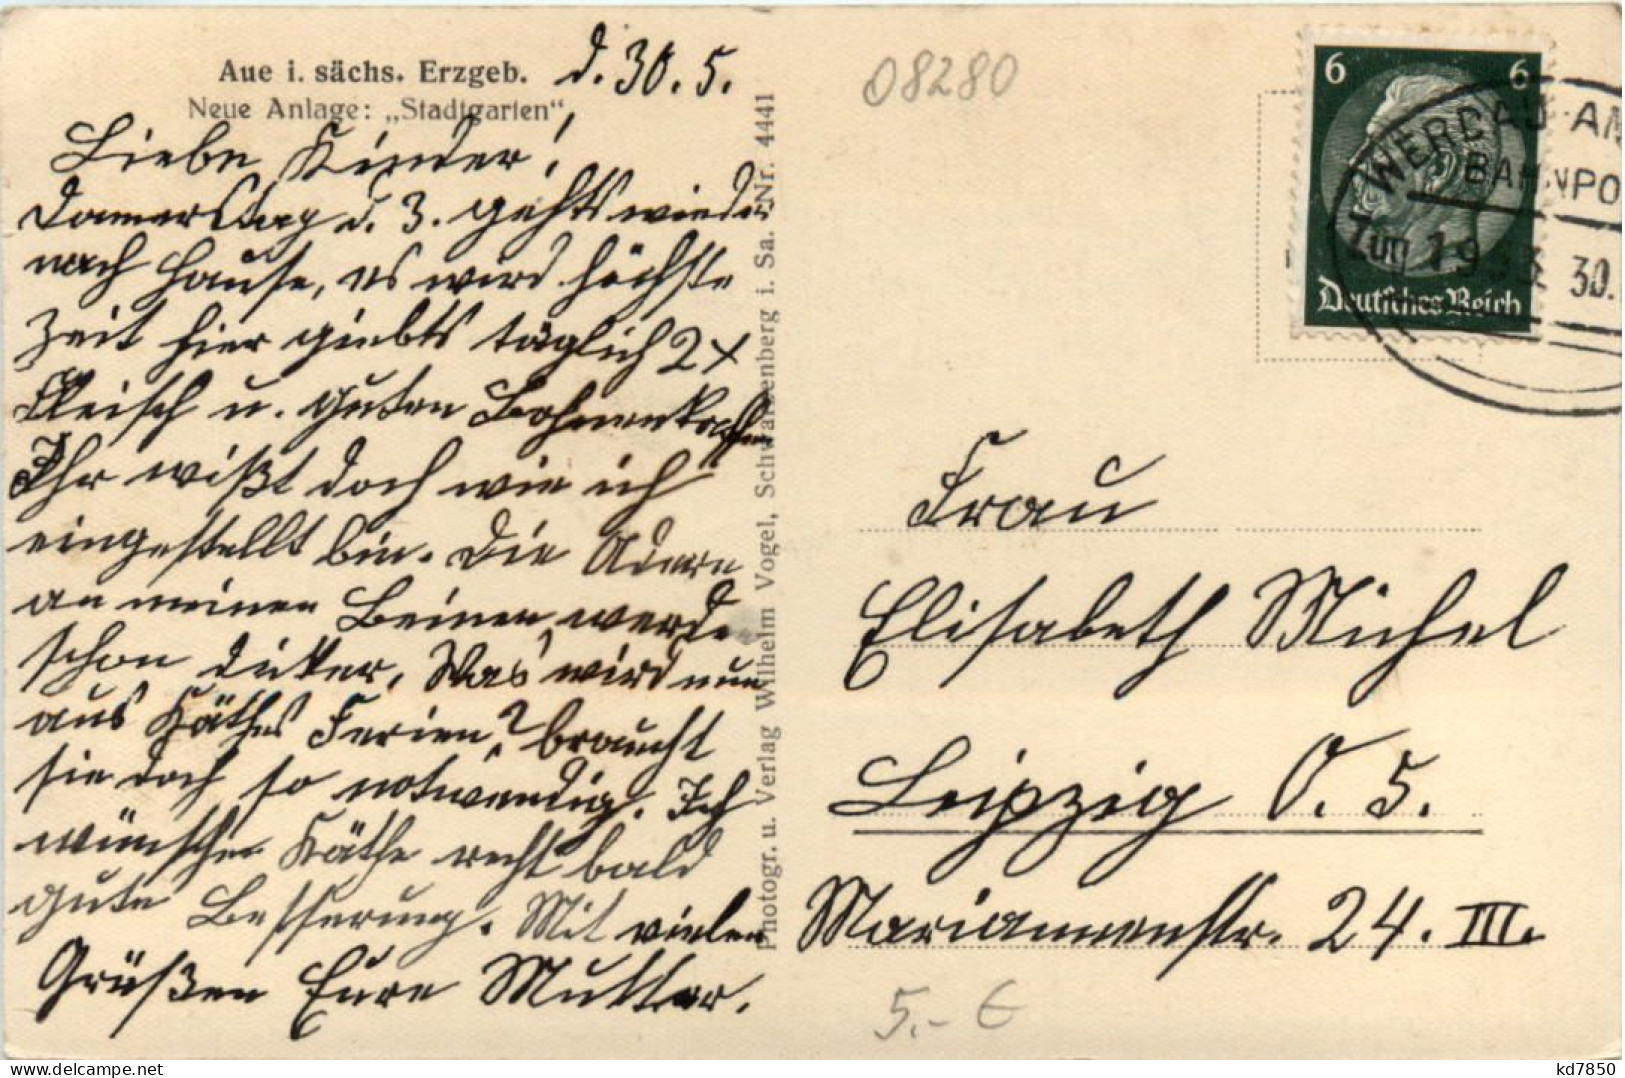 Aue i. sächs. Erzgeb.
Neue Anlage: „Stadtgarten“
d. 30. 5.
Liebe Kinder!
Donnerstag d. 3. gehts wieder
nach Hause, es wird höchste
Zeit hier giebts täglich 2x
Fleisch u. guten Bohnenkaffee
Ihr wißt doch wie ich
eingestellt bin. Die Adern
an meinen Beinen werde
schon dicker. Was wird nun
aus Käthes Ferien? braucht
sie doch so notwendig. Ich
wünsche Käthe recht bald
gute Besserung. Mit vielen
Grüßen Eure Mutter.
Photogr. u. Verlag Wilhelm Vogel, Schwarzenberg i. Sa. Nr. 4441
08280
6 6
Deutsches Reich
WERDAU
BAHNPO
Zug 19 30.
Frau
Elisabeth Michel
Leipzig O. 5.
Mariannenstr. 24. III.
5.- €
kd7850